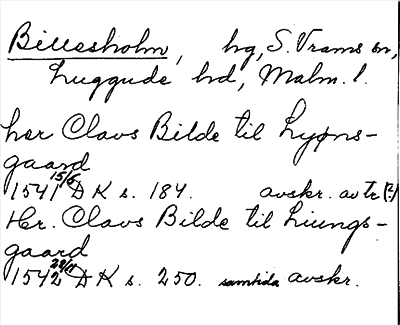 Billesholm, hg, S. Vrams sn,
Luggude hd, Malm. l.
her Claus Bilde til Lyøns-
gaard
1541 15/6 DK s. 184. avskr. av tr (?)
Hr. Claus Bilde til Liungs-
gaard
1542 28/11 DK s. 250. samtida avskr.